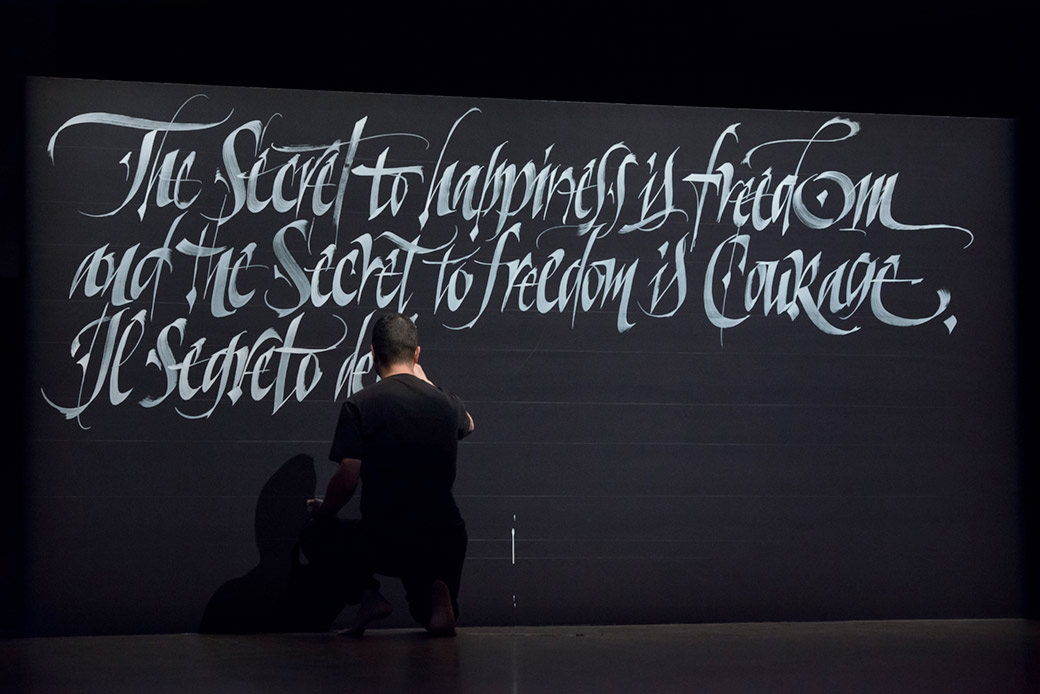 The Secret to happiness is freedom
and the Secret to freedom is Courage.
Il Segreto de